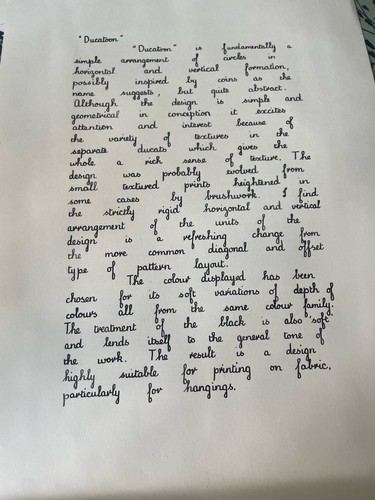 "Ducatoon"
"Ducatoon" is fundamentally a
simple arrangement of circles in
horizontal and vertical formation,
possibly inspired by coins as the
name suggests, but quite abstract.
Although the design is simple and
geometrical in conception it excites
attention and interest because of
the variety of textures in the
separate ducats which gives the
whole a rich sense of texture. The
design was probably evolved from
small textured prints heightened in
some cases by brushwork. I find
the strictly rigid horizontal and vertical
arrangement of the units of the
design is a refreshing change from
the more common diagonal and offset
type of pattern layout.
The colour displayed has been
chosen for its soft variations of depth of
colours all from the same colour family.
The treatment of the black is also "soft"
and lends itself to the general tone of
the work. The result is a design
highly suitable for printing on fabric,
particularly for hangings.